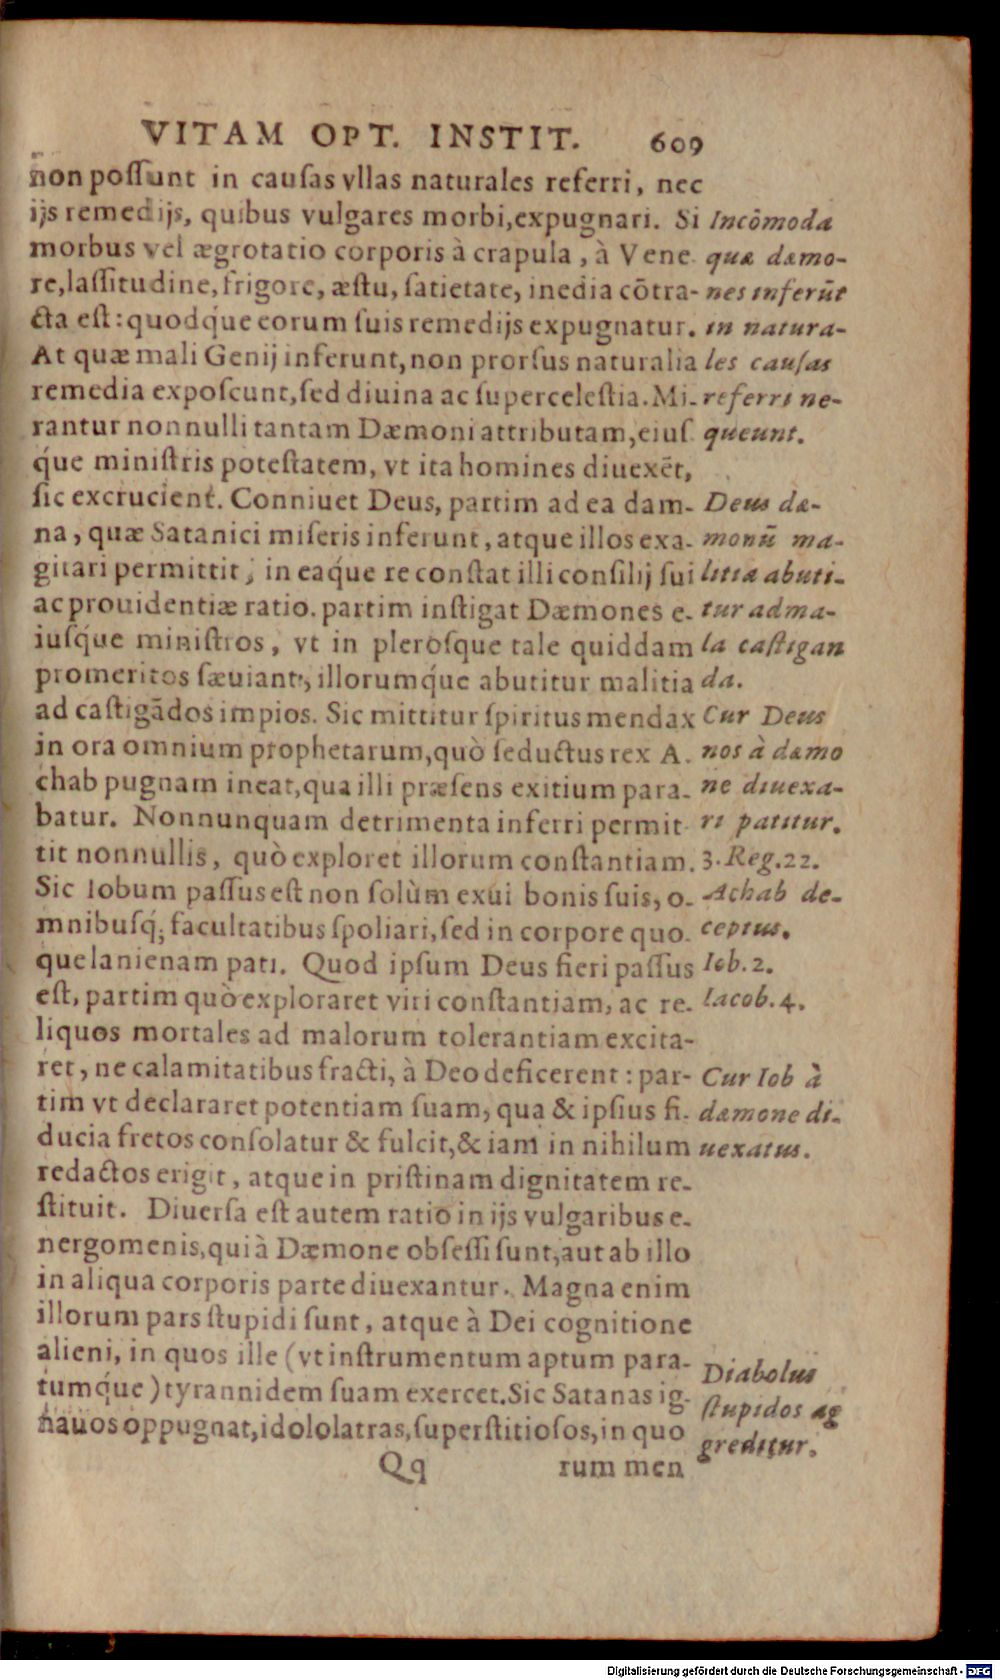 VITAM OPT. INSTIT. 609
non poſſunt in cauſas vllas naturales referri, nec
ijs remedijs, quibus vulgares morbi, expugnari. Si
morbus vel ægrotatio corporis à crapula, à Vene
re, laſſitudine, frigore, æſtu, ſatietate, inedia cōtra-
cta eſt: quodq́ue eorum ſuis remedijs expugnatur.
At quæ mali Genij inferunt, non prorſus naturalia
remedia expoſcunt, ſed diuina ac ſuperceleſtia. Mi-
rantur nonnulli tantam Dæmoni attributam, eiuſ
q́ue miniſtris poteſtatem, vt ita homines diuexēt,
ſic excrucient. Conniuet Deus, partim ad ea dam-
na, quæ Satanici miſeris inferunt, atque illos exa-
gitari permittit, in eaq́ue re conſtat illi conſilij ſui
ac prouidentiæ ratio. partim inſtigat Dæmones e-
iuſq́ue miniſtros, vt in pleroſque tale quiddam
promeritos ſæuiant, illorumq́ue abutitur malitia
ad caſtigādos impios. Sic mittitur ſpiritus mendax
in ora omnium prophetarum, quò ſeductus rex A-
chab pugnam ineat, qua illi præſens exitium para-
batur. Nonnunquam detrimenta inferri permit
tit nonnullis, quò exploret illorum conſtantiam.
Sic Iobum paſſus eſt non ſolùm exui bonis ſuis, o-
mnibuſq́; facultatibus ſpoliari, ſed in corpore quo-
que lanienam pati. Quod ipſum Deus fieri paſſus
eſt, partim quò exploraret viri conſtantiam, ac re-
liquos mortales ad malorum tolerantiam excita-
ret, ne calamitatibus fracti, à Deo deficerent: par-
tim vt declararet potentiam ſuam, qua & ipſius fi-
ducia fretos conſolatur & fulcit, & iam in nihilum
redactos erigit, atque in priſtinam dignitatem re-
ſtituit. Diuerſa eſt autem ratio in ijs vulgaribus e-
nergomenis, qui à Dæmone obſeſſi ſunt, aut ab illo
in aliqua corporis parte diuexantur. Magna enim
illorum pars ſtupidi ſunt, atque à Dei cognitione
alieni, in quos ille (vt inſtrumentum aptum para-
tumq́ue) tyrannidem ſuam exercet. Sic Satanas ig-
nauos oppugnat, idololatras, ſuperſtitioſos, in quo
Qq rum men
Incômoda
quæ dæmo-
nes inferūt
in natura-
les cauſas
referri ne-
queunt.
Deus dæ-
monū ma-
litia abuti-
tur ad ma-
la caſtigan
da.
Cur Deus
nos à dæmo
ne diuexa-
ri patitur.
3. Reg. 22.
Achab de-
ceptus.
Iob. 2.
Iacob. 4.
Cur Iob à
dæmone di-
uexatus.
Diabolus
ſtupidos ag
greditur.
Digitalisierung gefördert durch die Deutsche Forschungsgemeinschaft - DFG